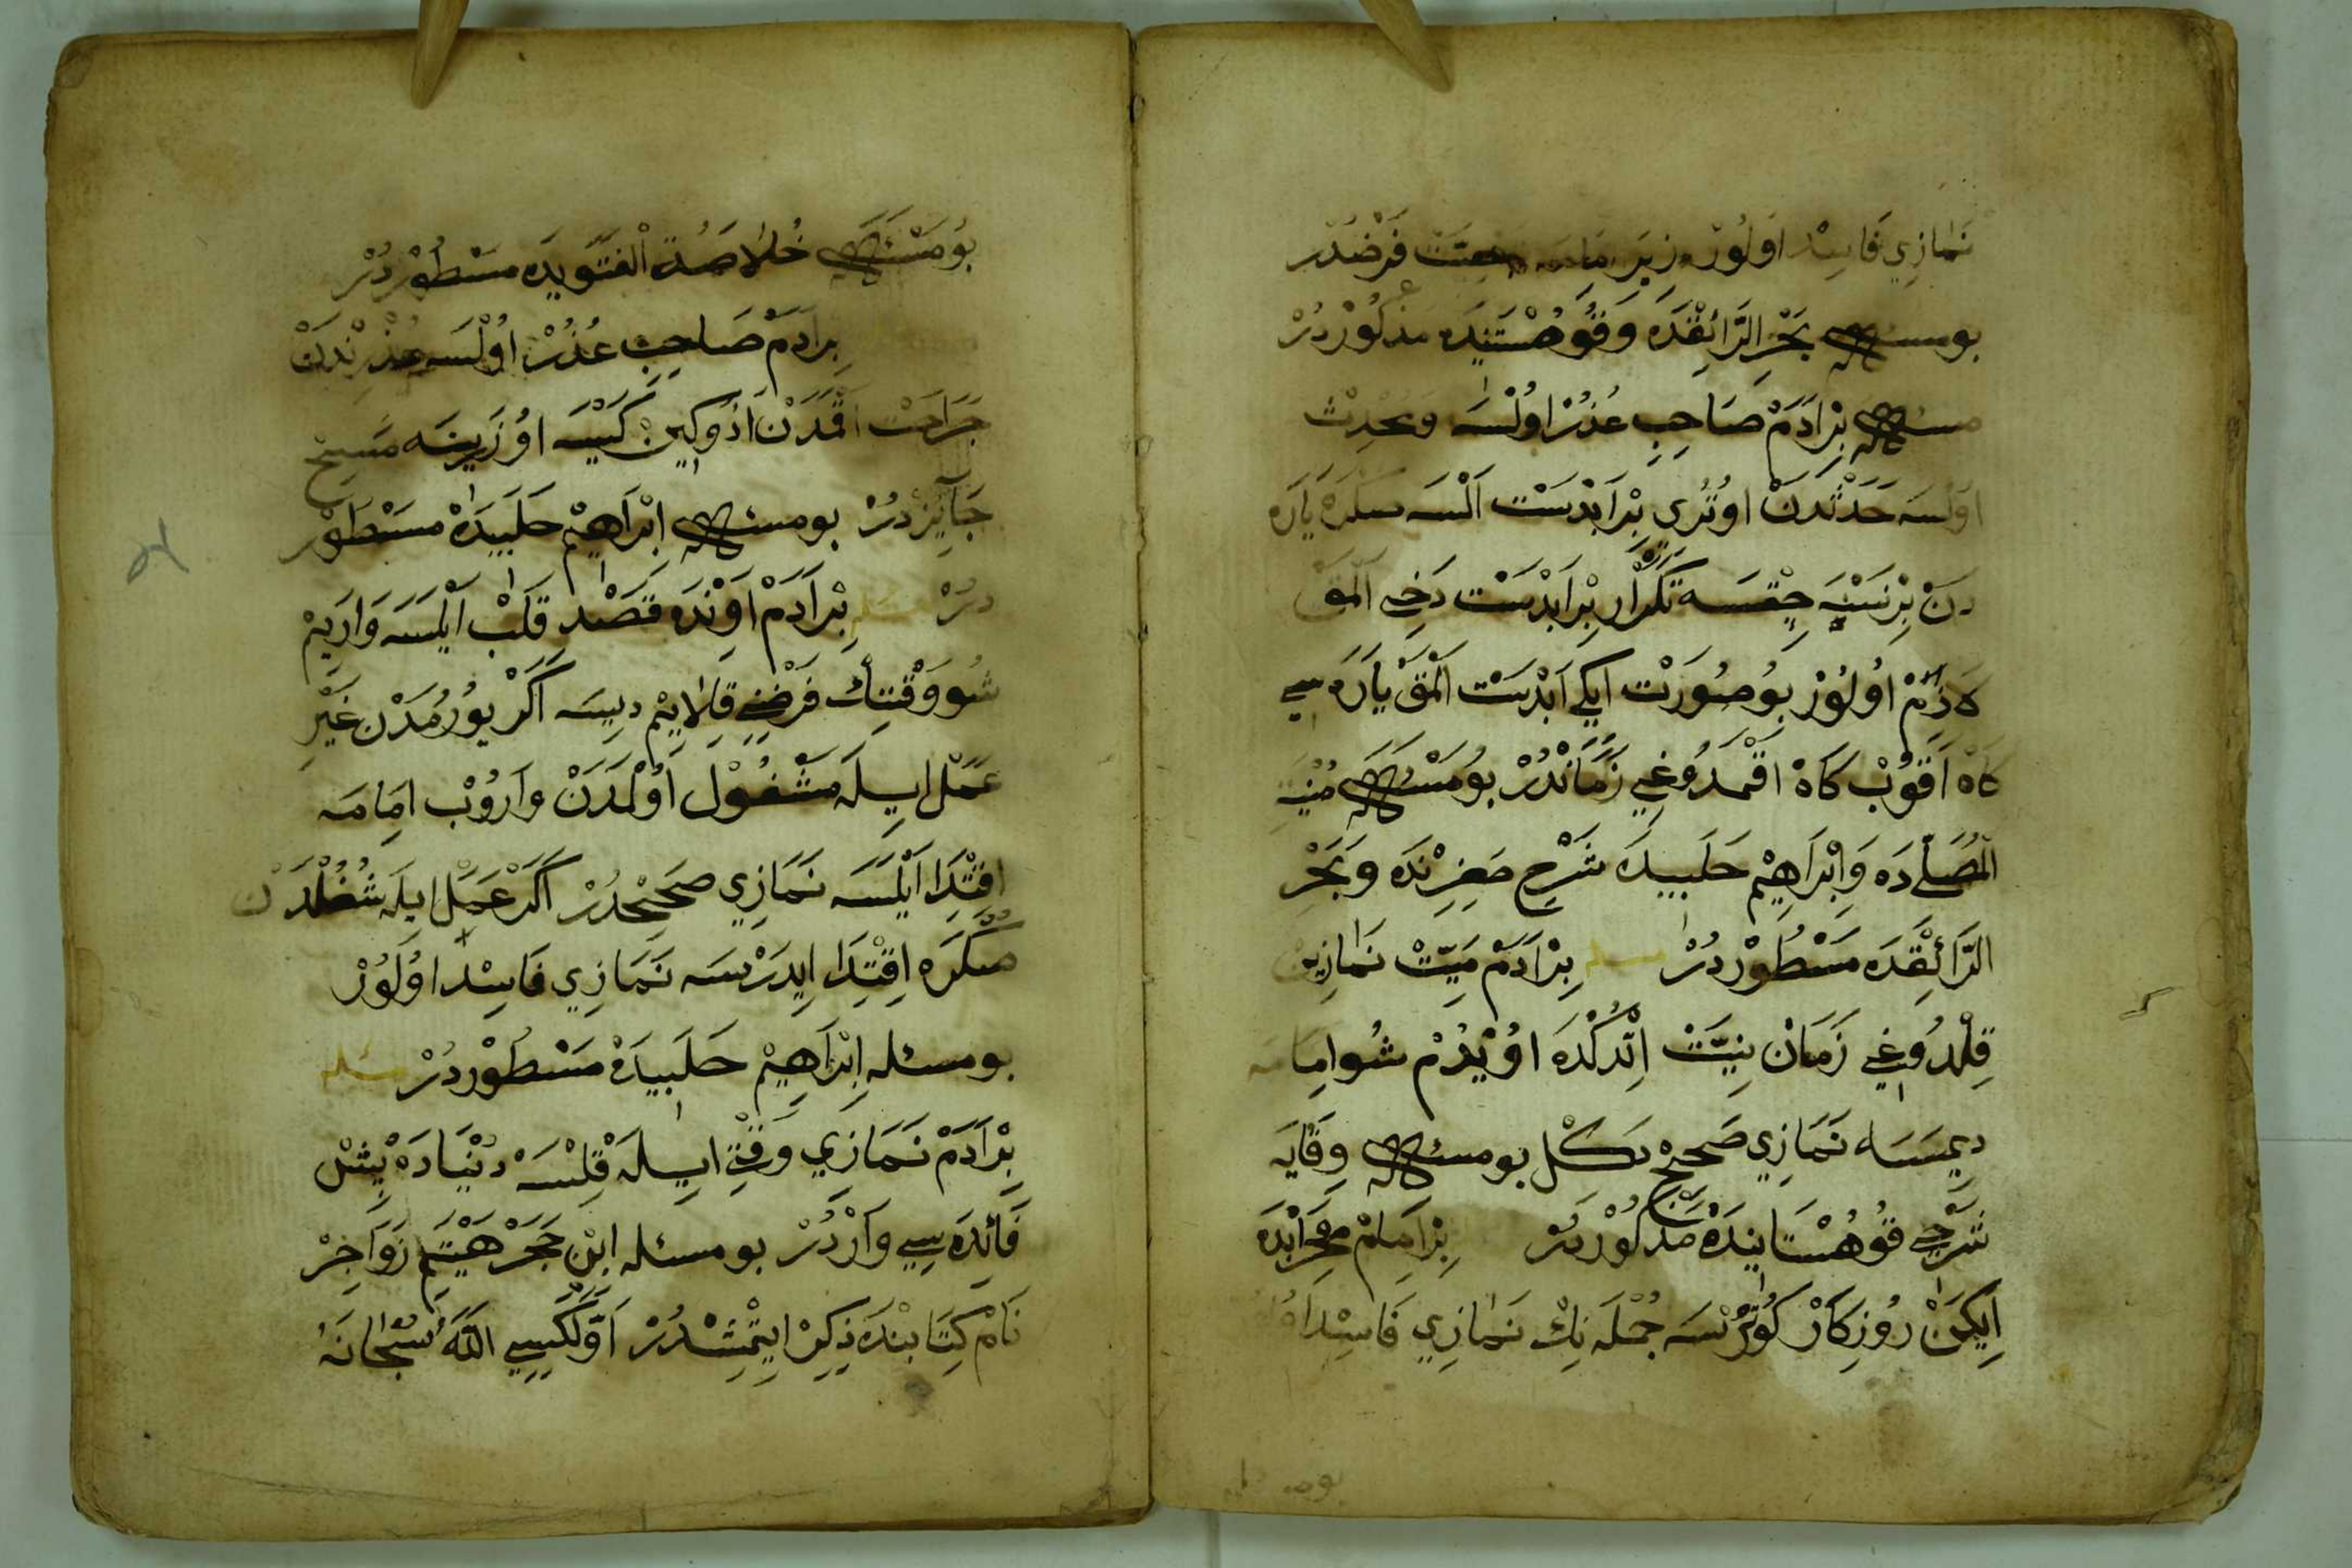 نَمَازِي فَاسِدْ اَولُورْ زِيرَ فَرْضْدُرْ
بو مسئله بَحْرِ الرَّائِقْدَه وَقُوهُسْتَنِيدَه مَذْكُورْدُرْ
مسئله بِرْ اَدَمْ صَاحِبِ عُذُرْ اولْسَه وَمُحْدِثْ
اولْسَه حَدَثْدَنْ اوتُرِي بِرْ اَبْدَسْتْ اَلْسَه سكره يَارَه
دَنْ بِرْ نَسْنَه چِقْسَه تَكْرَارْ بِرْ اَبْدَسْتْ دَخِي اَلْمَقْ
لَازِمْ اولُورْ بُو صُورَتْ ايكِي اَبْدَسْتْ اَلْمَقْ يَارَه سِي
كَاهْ اَقُوبْ كَاهْ اَقْمَدُوغِي زَمَانْدُرْ بُو مَسْئَله مُنْيَةِ
الْمُصَلِّي دَه وَاِبْرَاهِيمْ حَلَبِيدَه شَرْحِ صَغِيرِنْدَه وَبَحْرِ
الرَّائِقْدَه مَسْطُورْدُرْ مسئله بِرْ اَدَمْ مَيِّتْ نَمَازِينْ
قِلْدُوغِي زَمَانْ نِيَّتْ اِتْدُكْدَه اوُيْدُمْ شُو امَامَه
دِيمَسَه نَمَازِي صَحِيحْ دكل بو مسئله وِقَايَه
شَرْحِي قُوهُسْتَانِيدَه مَذْكُورْدُرْ بِرْ اِمَامْ مِحْرَابْدَه
اِيكَنْ رُوزِكَارْ كُوتُرْسَه جُمْلَه نِكْ نَمَازِي فَاسِدْ
بُو مَسْئَله خُلَاصَةُ الْفَتَوِيدَه مَسْطُورْدُرْ
بِرْ اَدَمْ صَاحِبِ عُذُرْ اُولْسَه عُذْرِنْدَنْ
جَرَاحَتْ اَقْمَدَنْ اَدُوكِينْ كَيْسَه اوزَرِينَه مَسِحْ
جَائِزْدُرْ بو مسئله اِبْرَاهِيمْ حَلَبِيدَه مَسْطُور
دُرْ مسئله بِرْ اَدَمْ اَوِنْدَه قَصْدِ قَلْبْ اَيْلَسَه وَارَيِمْ
شُو وَقْتِكْ فَرْضِنِي قِلَايِمْ دِيسَه اَكَرْ يُورُمَدَنْ غَيْرِ
عَمَلْ ايلَه مَشْغُولْ اَولْمَدَنْ وَارُوبْ امَامَه
اِقْتِدَا اَيْلَسَه نَمَازِي صَحِيحْدُرْ اَكَرْ عَمَلْ ايلَه شُغُلْدَنْ
صكره اِقْتِدَا ايدَرْسَه نَمَازِي فَاسِدْ اولُورْ
بو مسئله اِبْرَاهِيمْ حَلَبِيدَه مَسْطُورْدُرْ مسئله
بِرْ اَدَمْ نَمَازِي وَقْتِي ايلَه قِلْسَه دُنْيَادَه بِشْ
فَائِدَه سِي وَارْدُرْ بو مسئله ابْنِ حَجَرْ هَيْتَمِ زَوَاجِرْ
نَامْ كِتَابنْدَه ذِكِرْ ايتْمِشْدُرْ اَوَّلْكِيسِي اللهُ سُبْحَانَهُ